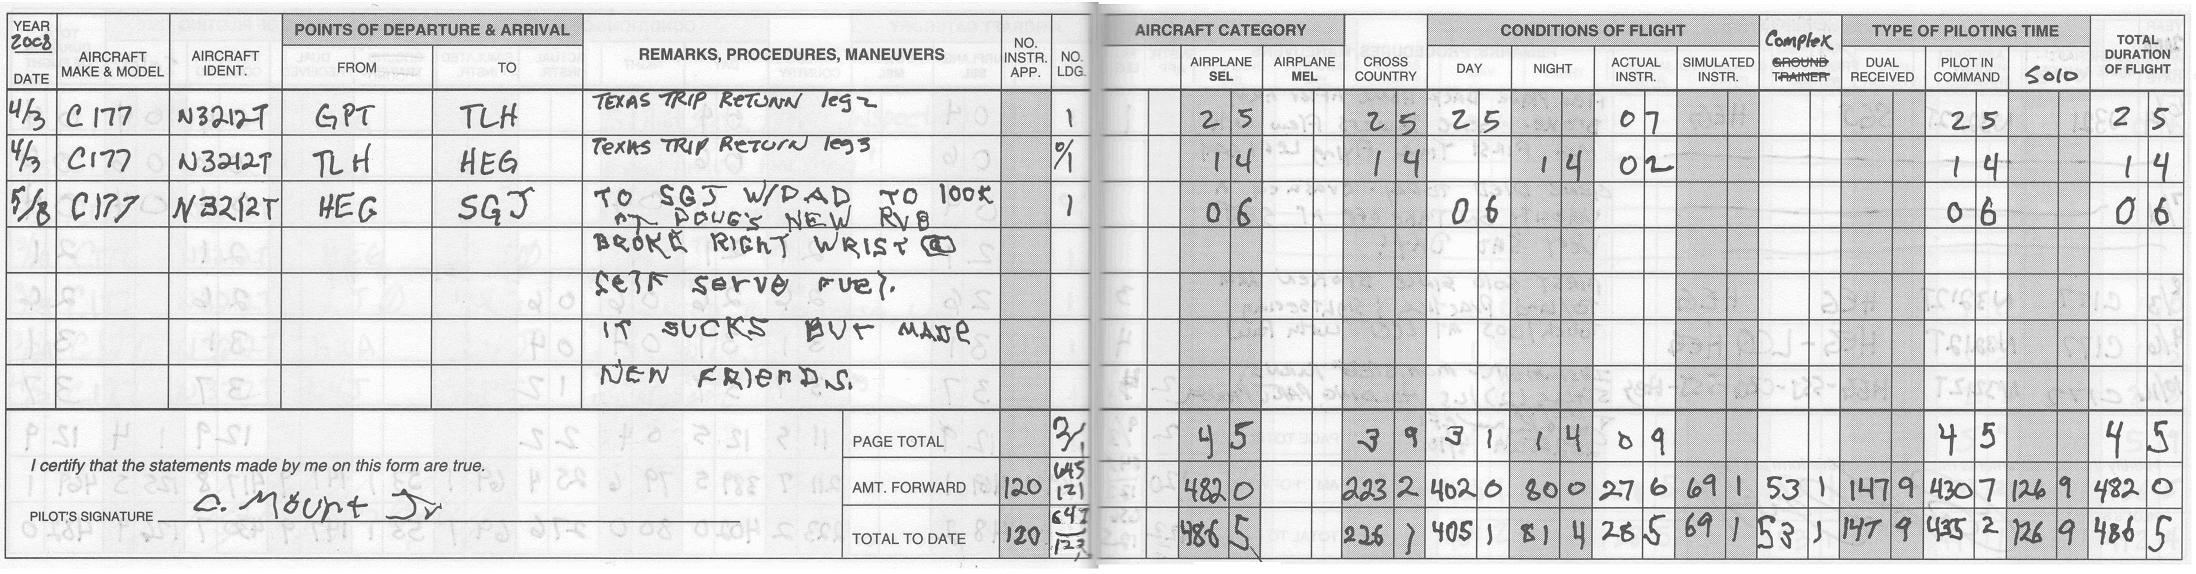 YEAR 2008 DATE AIRCRAFT MAKE & MODEL AIRCRAFT IDENT. POINTS OF DEPARTURE & ARRIVAL FROM TO REMARKS, PROCEDURES, MANEUVERS NO. INSTR. APP. NO. LDG. AIRCRAFT CATEGORY AIRPLANE SEL AIRPLANE MEL CROSS COUNTRY CONDITIONS OF FLIGHT DAY NIGHT ACTUAL INSTR. SIMULATED INSTR. Complex GROUND TRAINER TYPE OF PILOTING TIME DUAL RECEIVED PILOT IN COMMAND SOLO TOTAL DURATION OF FLIGHT
4/3 C177 N3212T GPT TLH TEXAS TRIP RETURN leg 2 1 2 5 2 5 2 5 0 7 2 5 2 5
4/3 C177 N3212T TLH HEG TEXAS TRIP RETURN leg 3 0/1 1 4 1 4 1 4 0 2 1 4 1 4
5/8 C177 N3212T HEG SGJ TO SGJ W/DAD TO lOOK 1 0 6 0 6 0 6 0 6
AT DOUG'S NEW RV8
BROKE RIGHT WRIST @
Self serve fuel.
IT SUCKS BUT MADE
NEW FRIENDS.
PAGE TOTAL 3/1 4 5 3 9 3 1 1 4 0 9 4 5 4 5
I certify that the statements made by me on this form are true.
AMT. FORWARD 120 121 482 0 223 2 402 0 80 0 27 6 69 1 53 1 147 9 430 7 126 9 482 0
PILOT'S SIGNATURE C. Mount Jr
TOTAL TO DATE 120 486 5 227 1 405 1 81 4 28 5 69 1 53 1 147 9 435 2 126 9 486 5